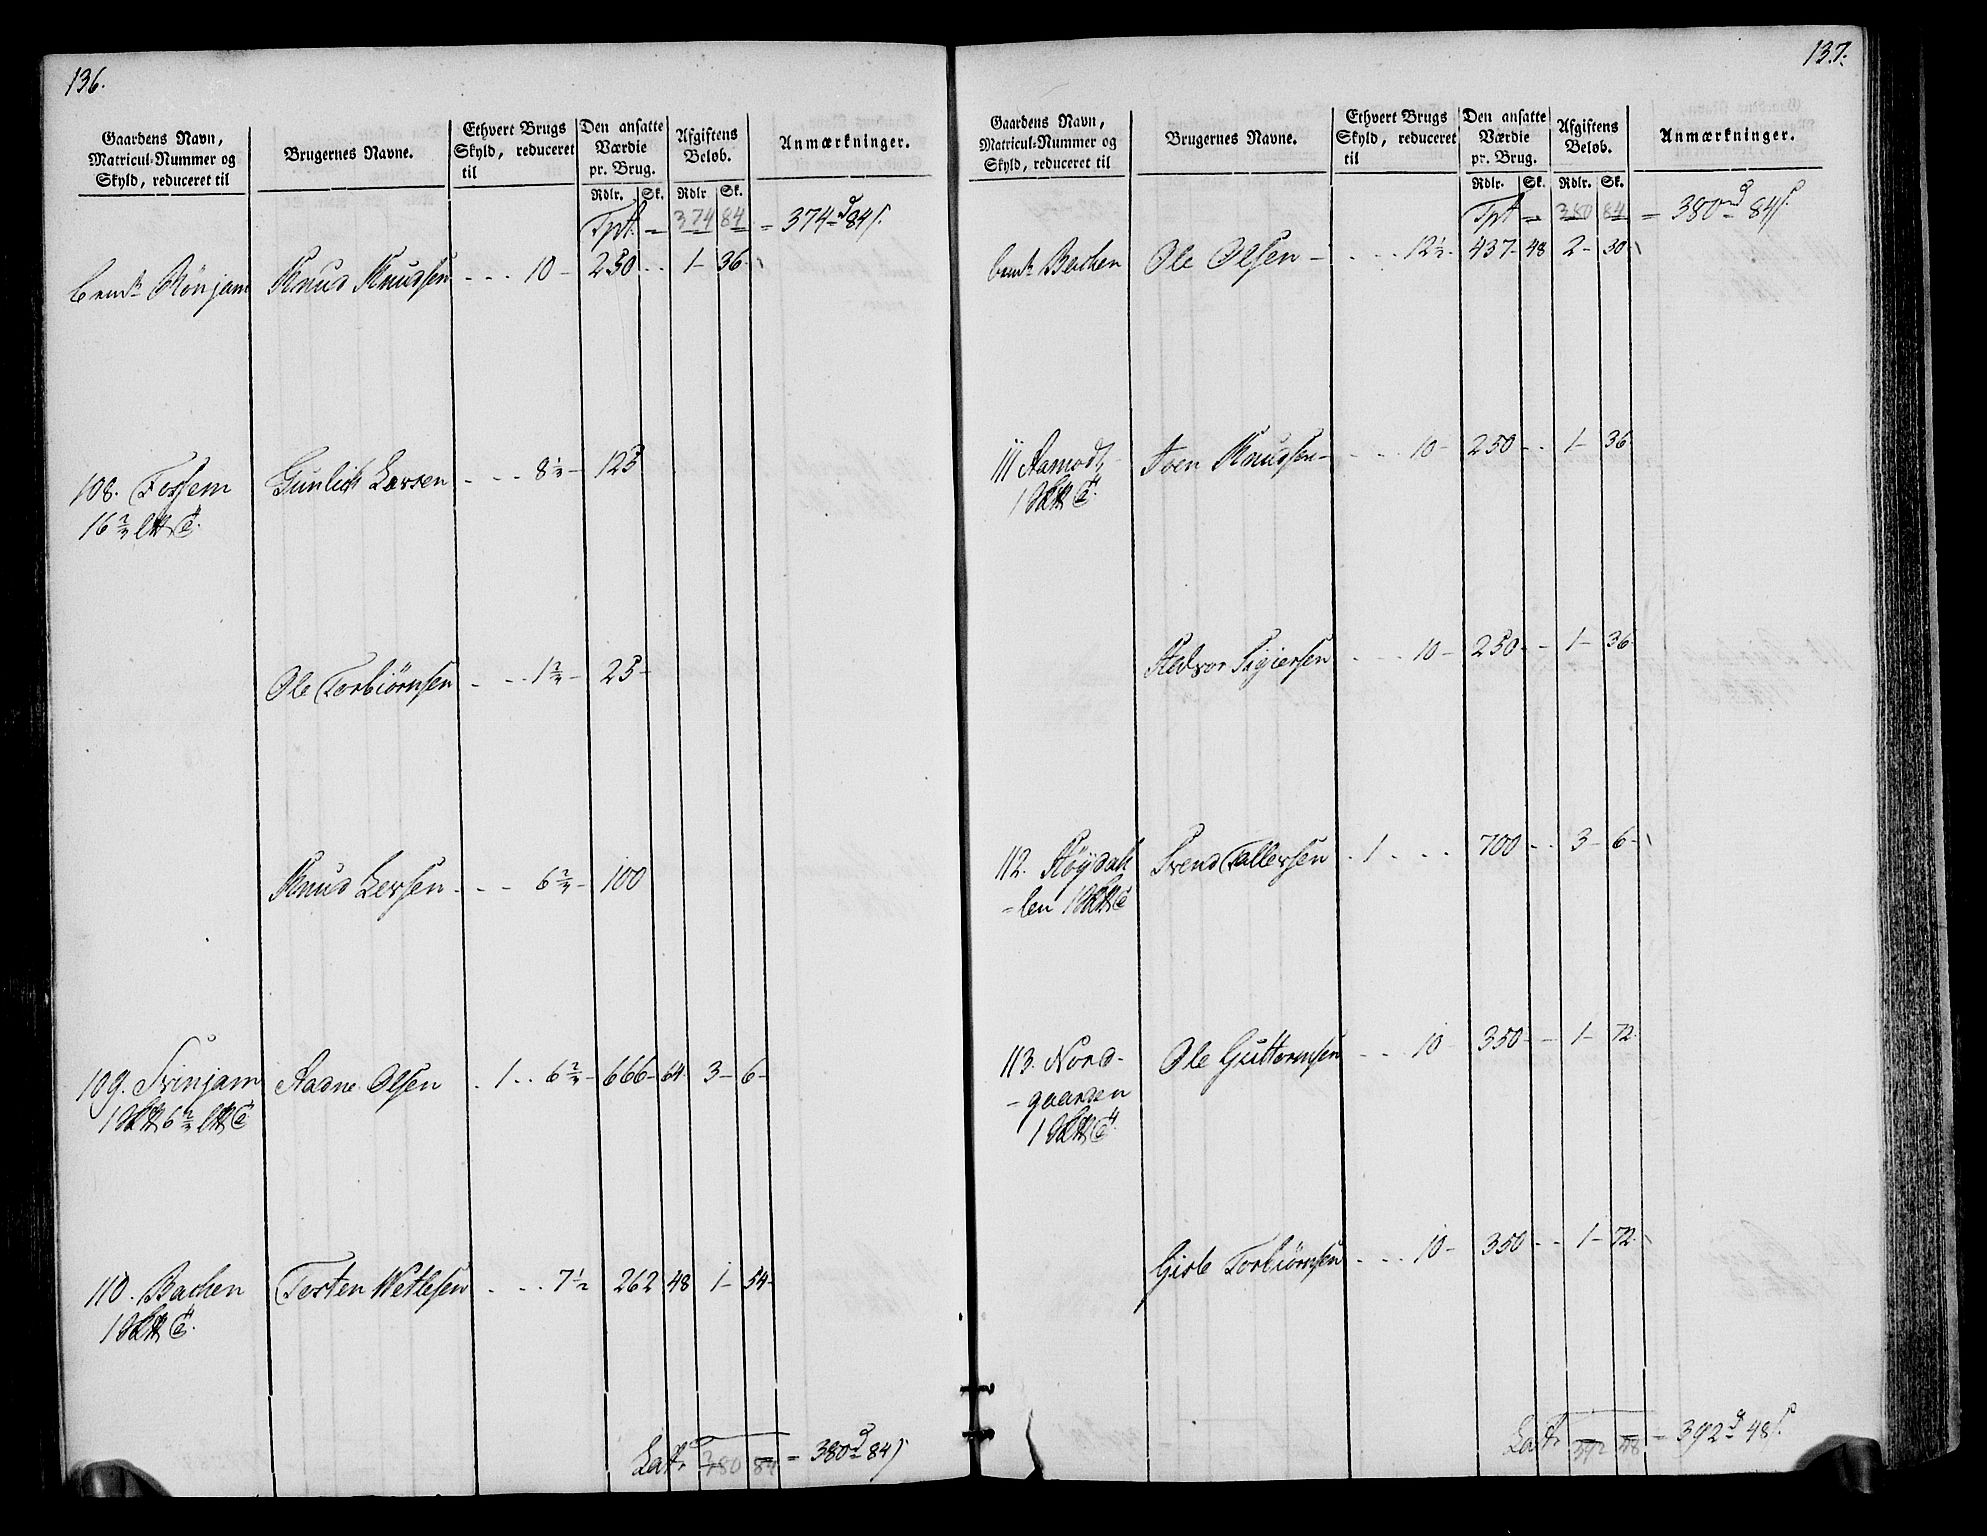 136.
Gaardens Navn, Matricul-Nummer og Skyld, reduceret til | Brugernes Navne. | Ethvert Brugs Skyld, reduceret til | Den ansatte Værdie pr. Brug. Rdlr. Sk. | Afgiftens Beløb. Rdlr Sk. | Anmærkninger.
Tpt. = 374 84 = 374 d 84 s.
Rönjam Knud Knudsen - - - 10 - 250 - - 1 - 36 -
108. Fossem Gunlich Larsen - - - 8 1/2 - 125
16 2/3
Ole Torbiörnsen - - - 1 2/3 - 25 -
Knud Larsen - - - 6 2/3 - 100
109. Svinjam Aadne Olsen . 1 . . 6 2/3 - 666 - 64 3 - 6 -
1 6 2/3
110. Bachen Torsten Wetlesen . . . 7 1/2 262 48 1 - 54 -
1
Lat. 380 84 = 380 d 84 s
137.
Gaardens Navn, Matricul-Nummer og Skyld, reduceret til | Brugernes Navne. | Ethvert Brugs Skyld, reduceret til | Den ansatte Værdie pr. Brug. Rdlr. Sk. | Afgiftens Beløb. Rdlr. Sk. | Anmærkninger.
Tpt = 380 84 = 380 d 84 s.
Bachen Ole Olsen - . - - 12 1/2 - 437 - 48 2 - 30
111 Aamodt Iven Knudsen - - - - 10 - 250 - - 1 - 36
1
Halvor Sigiersen - - - 10 - 250 - - 1 - 36
112. Höydah Svend Tallevsen . 1 . . . 700 - - 3 - 6 -
-len 1
113. Nord- Ole Guttormsen - - - 10 350 - - 1 - 72
-gaarden
1
Gisle Torbiörnsen - - - 10 - 350 - - 1 - 72 -
Lat. 392 48 = 392 d 48 s.